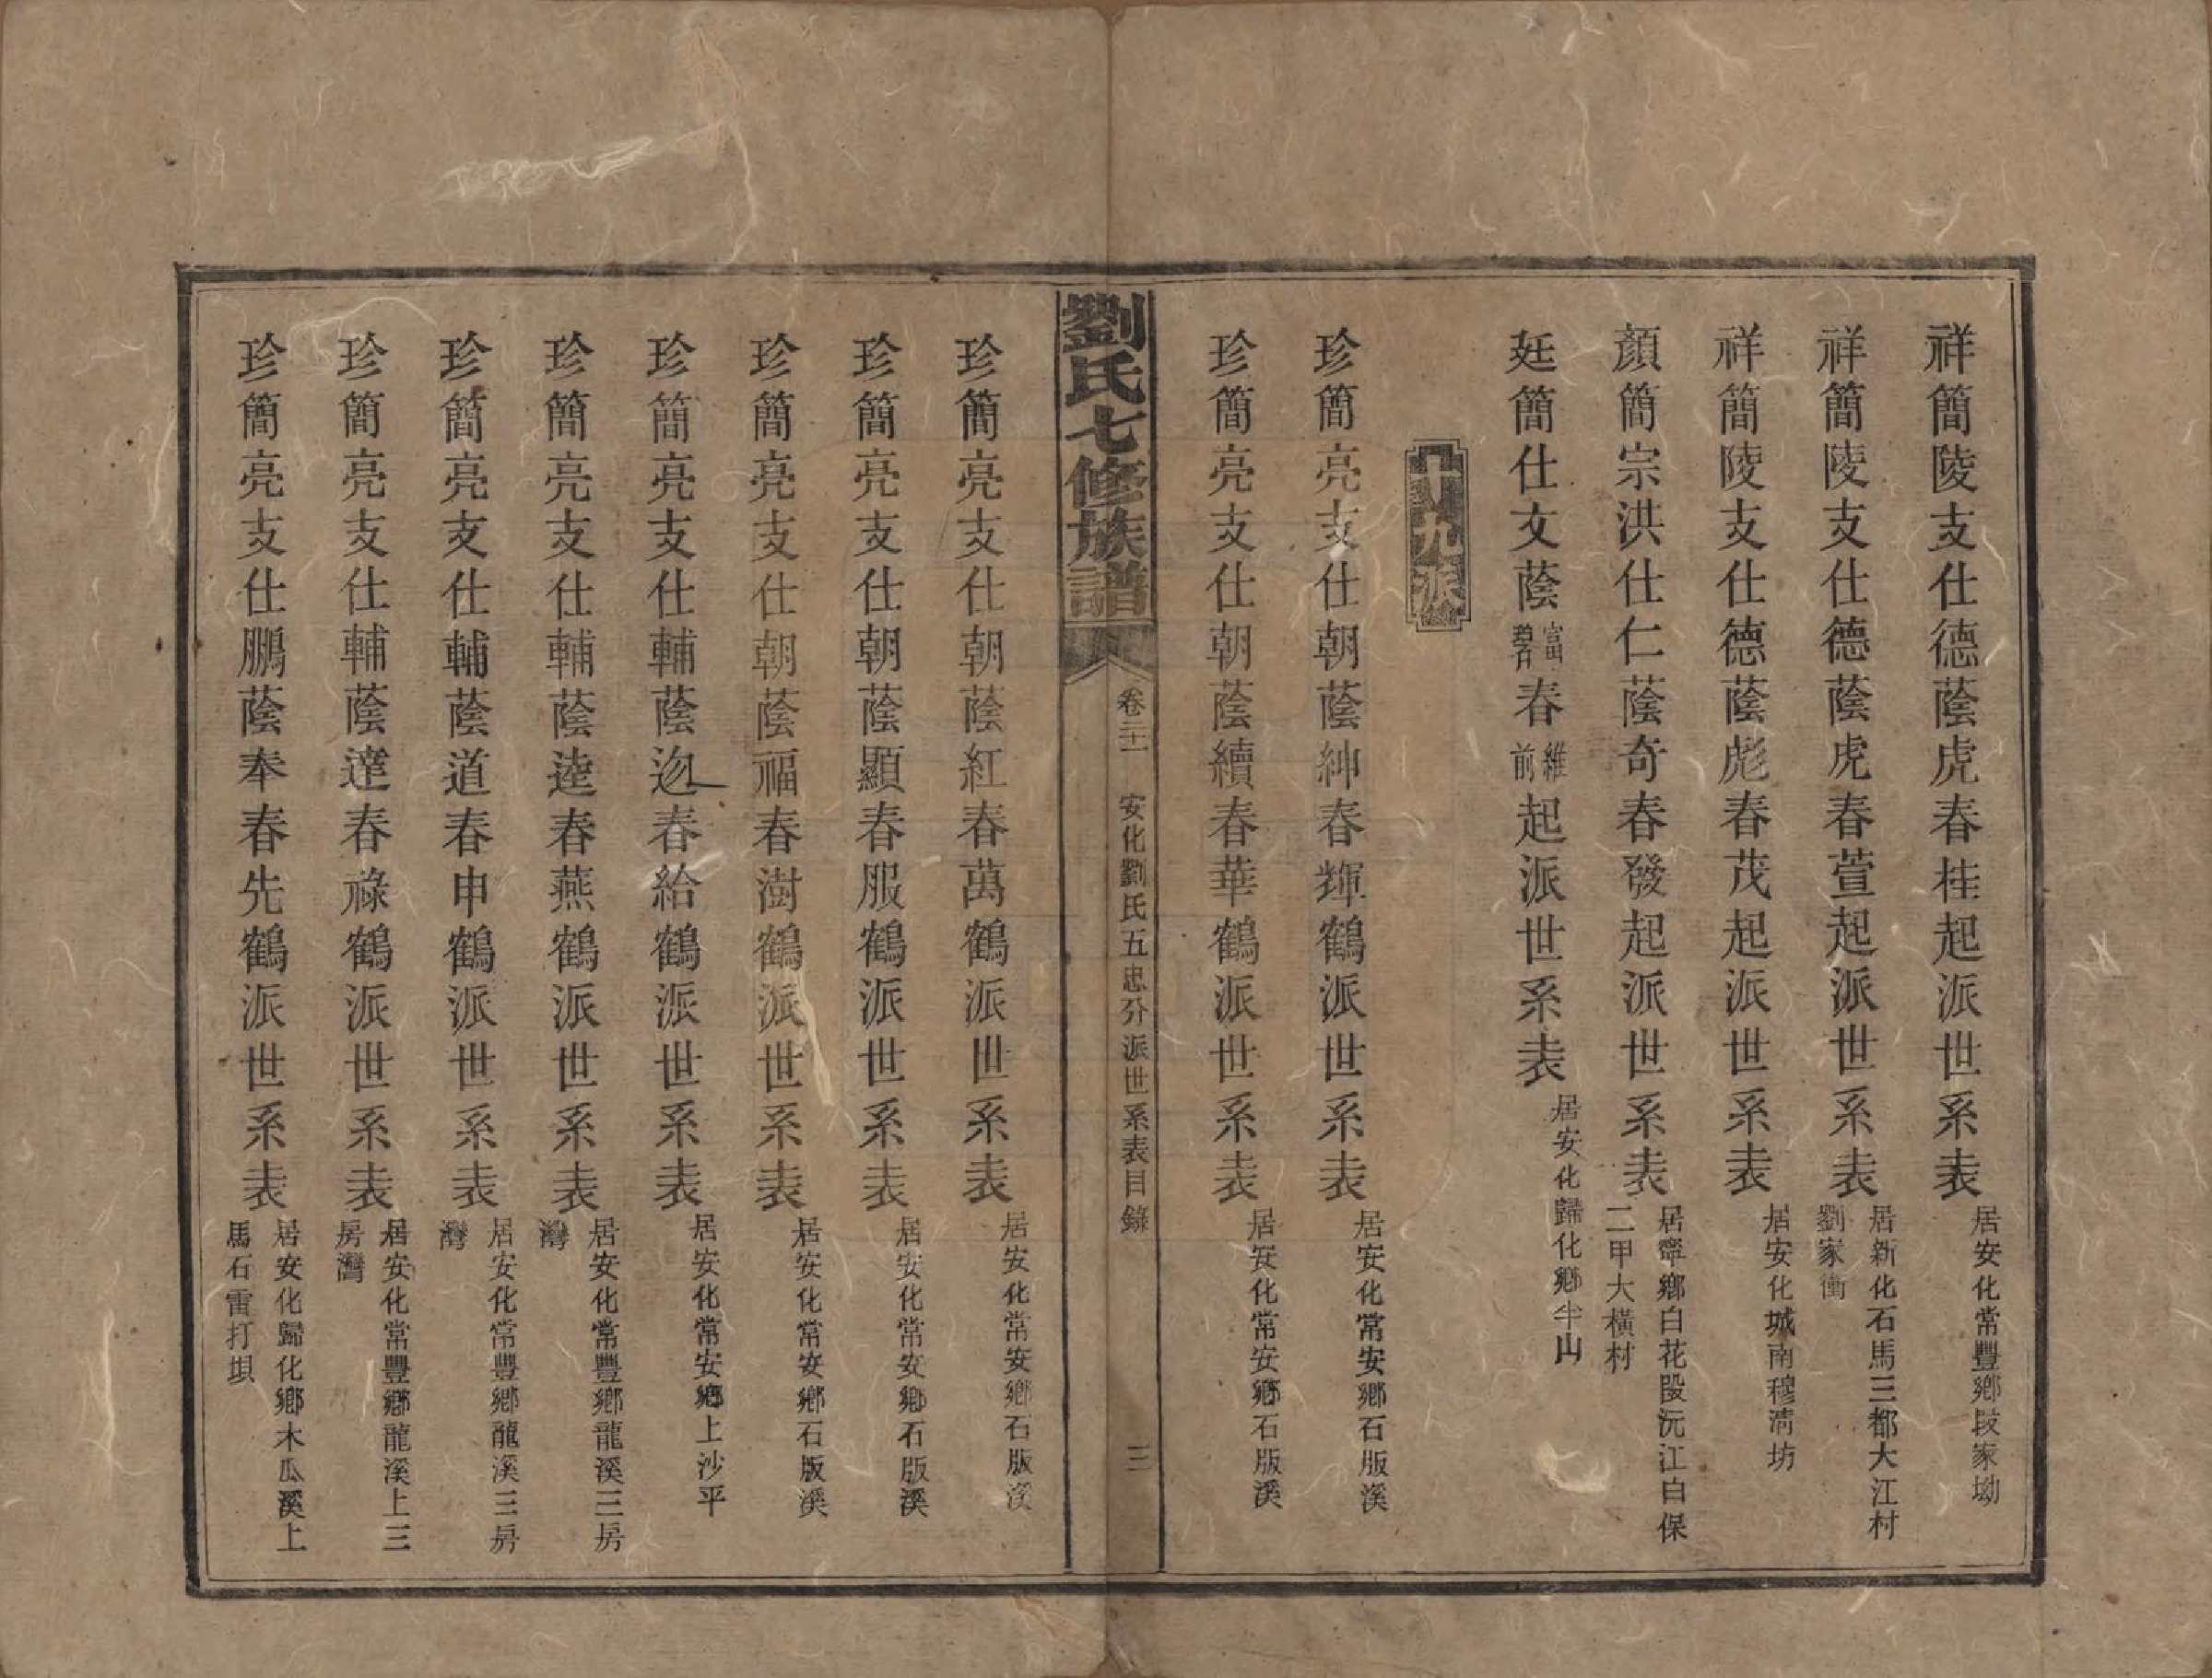 祥簡陵支仕德蔭虎春桂起派世系表 居安化常豐鄉段家坳
祥簡陵支仕德蔭虎春萱起派世系表 居新化石馬三都大江村劉家衝
祥簡陵支仕德蔭彪春茂起派世系表 居安化城南穆淸坊
顏簡宗洪仕仁蔭奇春發起派世系表 居寧鄉白花段沅江白保二甲大橫村
廷簡仕文蔭富碧春維前起派世系表 居安化歸化鄉半山
十九派
珍簡亮支仕朝蔭紳春輝鶴派世系表 居安化常安鄉石版溪
珍簡亮支仕朝蔭續春華鶴派世系表 居安化常安鄉石版溪
劉氏七修族譜 卷二十一 安化劉氏五忠分派世系表目錄 三
珍簡亮支仕朝蔭紅春萬鶴派世系表 居安化常安鄉石版溪
珍簡亮支仕朝蔭顯春服鶴派世系表 居安化常安鄉石版溪
珍簡亮支仕朝蔭福春澍鶴派世系表 居安化常安鄉石版溪
珍簡亮支仕輔蔭迩春給鶴派世系表 居安化常安鄉上沙平
珍簡亮支仕輔蔭逵春燕鶴派世系表 居安化常豐鄉龍溪三房灣
珍簡亮支仕輔蔭道春申鶴派世系表 居安化常豐鄉龍溪三房灣
珍簡亮支仕輔蔭達春祿鶴派世系表 居安化常豐鄉龍溪上三房灣
珍簡亮支仕鵬蔭奉春先鶴派世系表 居安化歸化鄉木瓜溪上馬石雷打垻